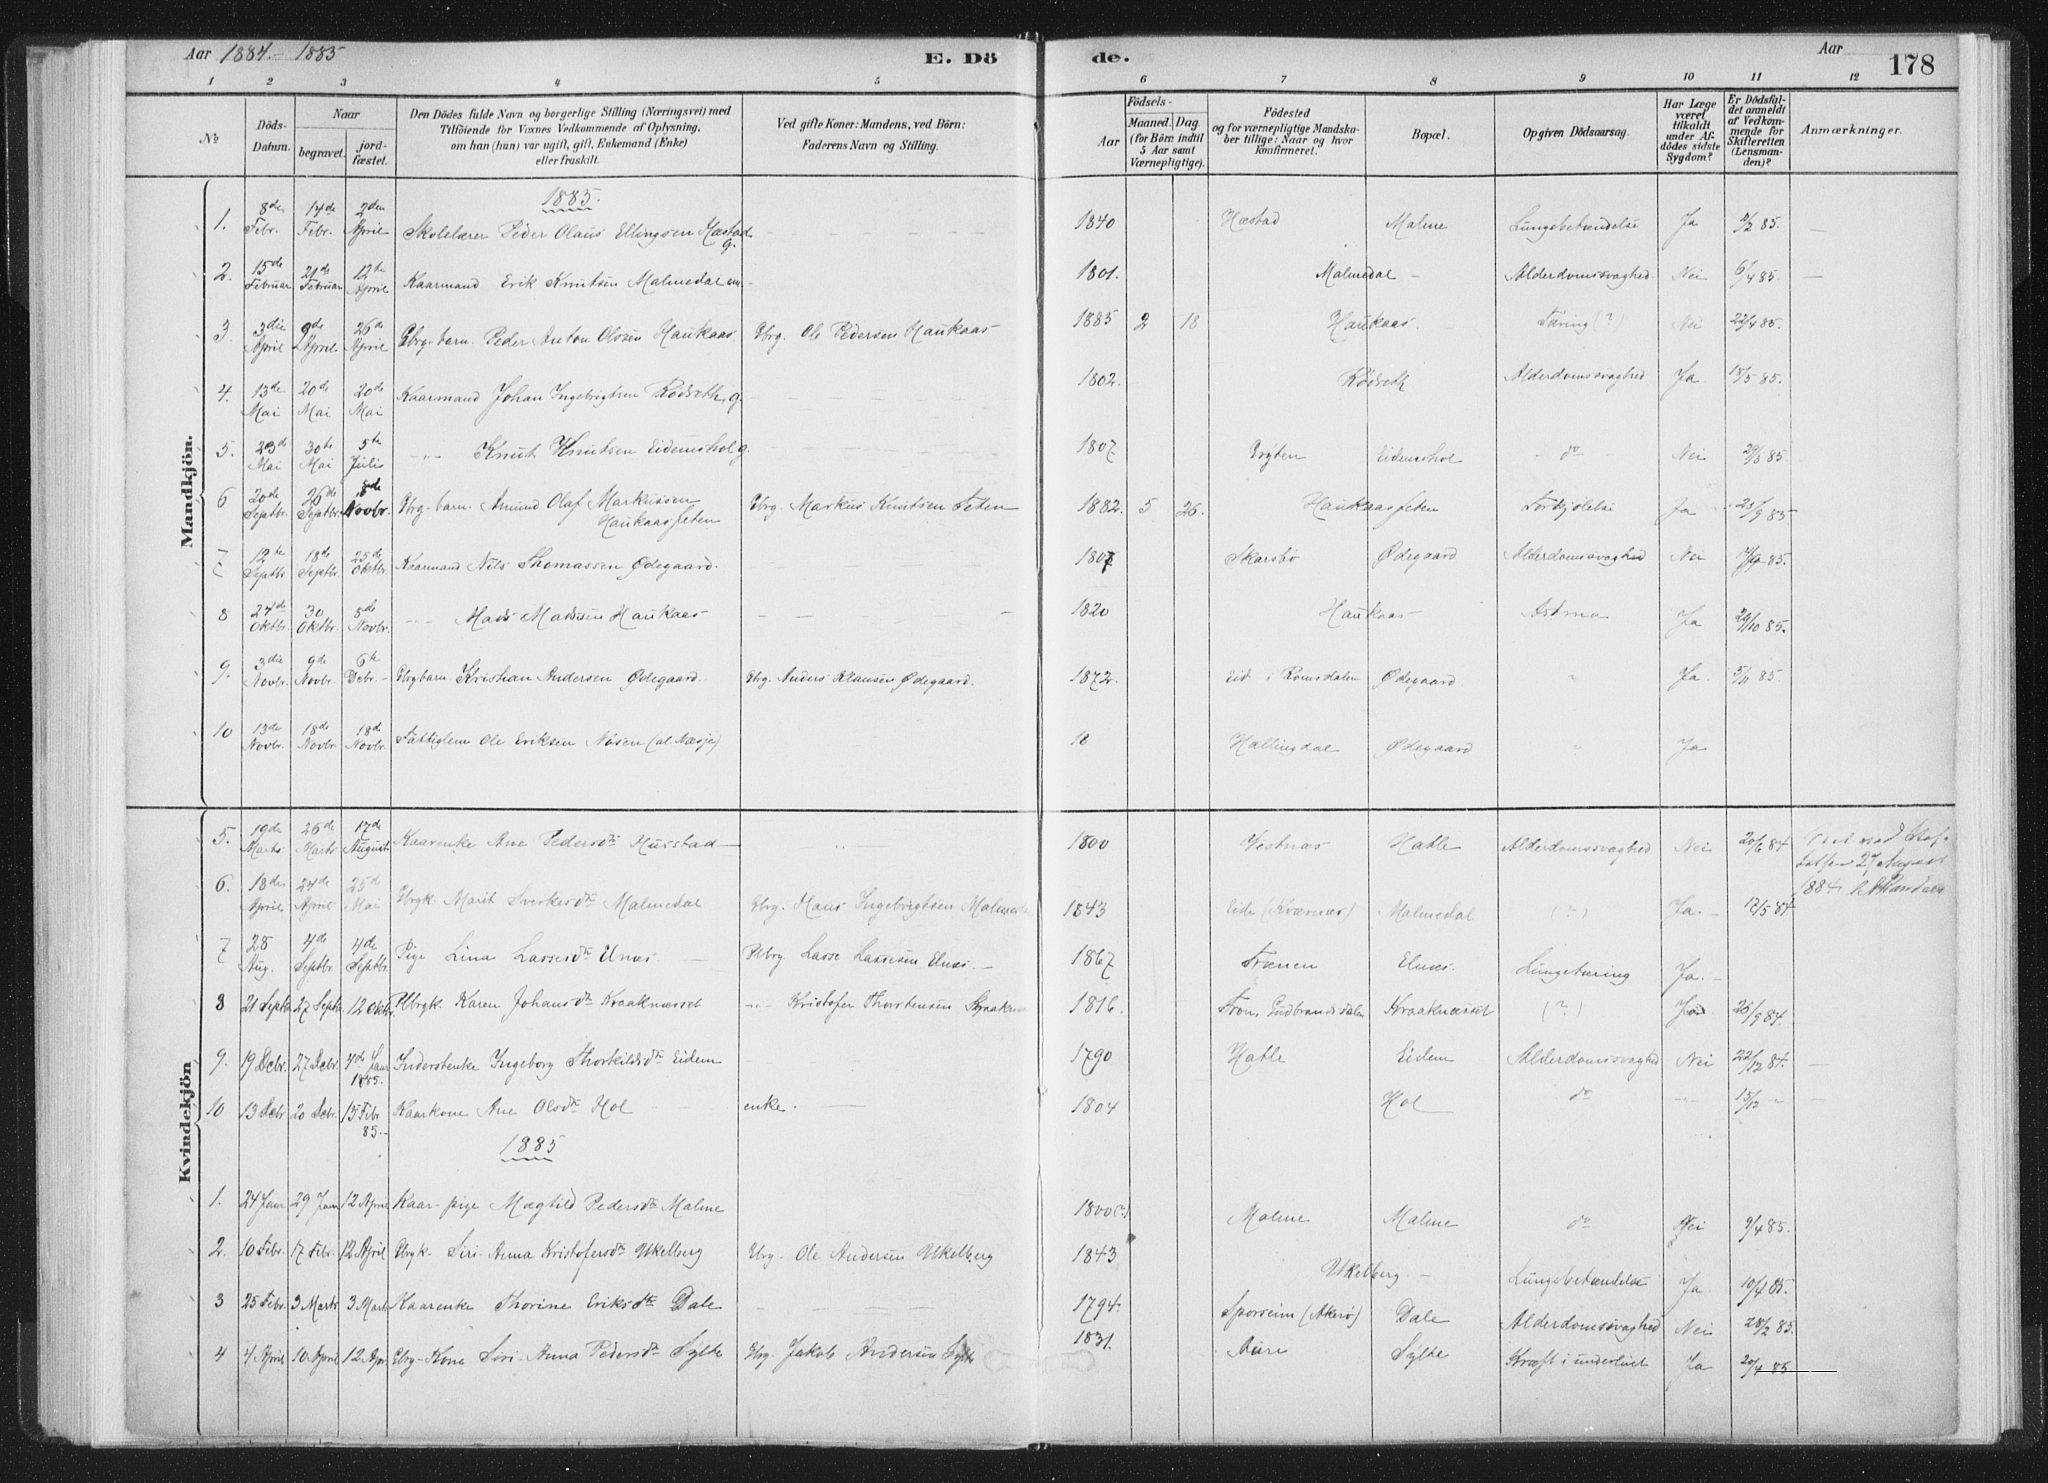 Aar 1884.-1885 E. Döde. Aar 178
1 2 3 4 5 6 7 8 9 10 11 12
No Döds-Datum. Naar begravet. jordfæstet. Den Dödes fulde Navn og borgerlige Stilling (Næringsvei) med Tilföiende for Voxnes Vedkommende af Oplysning, om han (hun) var ugift, gift, Enkemand (Enke) eller fraskilt. Ved gifte Koner: Mandens, ved Börn: Faderens Navn og Stilling. Födsels- Aar Maaned. Dag. (for Börn indtil 5 Aar samt Værnepligtige). Födested og for værnepligtige Mandskaber tillige: Naar og hvor konfirmeret. Bopæl. Opgiven Dödsaarsag. Har Læge været tilkaldt under Afdödes sidste Sygdom? Er Dödsfaldet anmeldt af Vedkommende for Skifteretten (Lensmanden)? Anmærkninger.
Mandkjön.
1885.
1. 8de Febr. 14de Febr. 2den April Skolelærer Peder Olaus Ellingsen Hæstad g. 1840 Hæstad Malme Lungebetændelse Ja 9/2 85.
2. 15de Februar 21de Februar 12te April Kaarmand Erik Knutsen Malmedal em. 1801. Malmedal Alderdomssvaghed. Nei 6/4 85.
3. 3die April 9de April 26de April Gbrg. barn. Peder Anton Olsen Haukaas. Gbrg. Ole Pedersen Haukaas 1885 2 18 Haukaas. Tæring (?) Nei 22/4 85.
4. 13de Mai 20de Mai 20de Mai Kaarmand Johan Ingebrigtsen Rödseth, g. 1802. Rödseth Alderdomssvaghed Ja 15/5 85.
5. 23d Mai 30te Mai 5te Julis Knut Knutsen Eidemshol g. 1807 Gryten Eidemshol do Nei 29/5 85.
6 20de Septbr. 26de Septbr. 8de Novbr. Gbrg. barn. Amund Olaf Markussen Haukaasfeten Gbrg. Markus Knutsen Feten 1882. 5 26. Haukaasfeten Forkjölelse Ja 25/9 85
7 12te Septbr 18de Septbr. 25de Oktbr. Kaarmand Nils Thomassen Ødegaard. 1807 Skarsbö Ødegaard Alderdomssvaghed Nei 85.
8 24de Oktbr. 30 Oktbr. 8de Novbr. Mads Madsen Haukaas 1820 Haukaas Astma Ja 29/10 85.
9. 3die Novbr. 9de Novbr. 6te Debr. Gbrgbarn Kristian Andersen Ødegaard. Gbrg. Anders Klausen Ødegaard. 1872. Eid i Romsdalen Ødegaard " Ja. 5/11 85.
10 13de Novbr. 18de Novbr. 18de Novbr. Fattiglem Ole Eriksen Nösen (al. Næsje) 18 Hallingdal Ødegaard " Ja
Kvindekjön
5. 19de Marts 26de Marts 17de August Kaarenke Ane Pedersdtr Husstad 1800 Vestnæs Hatle Alderdomssvaghed Nei 20/6 84 27 August 1884
6. 18de April 24de April 25de Mai Gbrgk. Marit Sverkesdtr Malmedal Gbrg. Hans Ingebrigtsen Malmedal 1843 Eide (Kværnæs) Malmedal (?) Ja. 12/5 84
7 28 Aug. 4de Septbr. 4de Septbr. Pige Lina Lassesdtr Elnæs Plbrg. Lasse Lassesen Elnæs. 1867 Frænen Elnæs. Lungetæring Ja.
8 21 Septbr 27 Septbr. 12 Oktbr. Plbrgk. Karen Johansdtr Kraaknæsset Kristofer Thorstensen 1816. Fron, Gudbrandsdalen Kraaknæsset (?) 26/9 84.
9. 19 Debr. 27 Debr. 4de Janr 1885. Inderstenke Ingeborg Thorkildsdtr Eidem 1790 Hatle Eidem Alderdomssvaghed Nei 22/12 84.
10 13 Debr 20 Debr. 15 Febr 85. Kaarkone Ane Olsdtr Hol enke. 1804 Hol do 15/12
1885
1. 24 Janr 29 Janr 12 April Kaar-pige Magtild Pedersdtr Malme 1800(?) Malme Malme do Nei 9/4 85.
2. 10 Febr. 17 Febr. 12 April Gbrgk. Siri-Anna Kristofersdtr Vikelberg Gbrg. Ole Andersen Vikelberg 1843 Vikelberg. Lungebetændelse Ja. 10/4 85.
3 25 Febr. 3 Marts 3 Marts Kaarenke Thorine Eriksdtr Dale 1794. Sporseim (Akerö) Dale Alderdomssvaghed Nei 28/2 85.
4 4 April 10 April 12 Apr Gbrg-Kone Siri-Anna Pedersdtr Sylte Gbrg. Jakob Andersen Sylte 1831. Aure Sylte Kræft i underlivet Ja 20/4 85